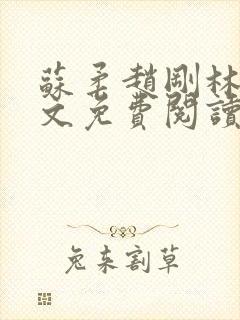 蘇柔趙剛林
文免費閱讀
兔來割草